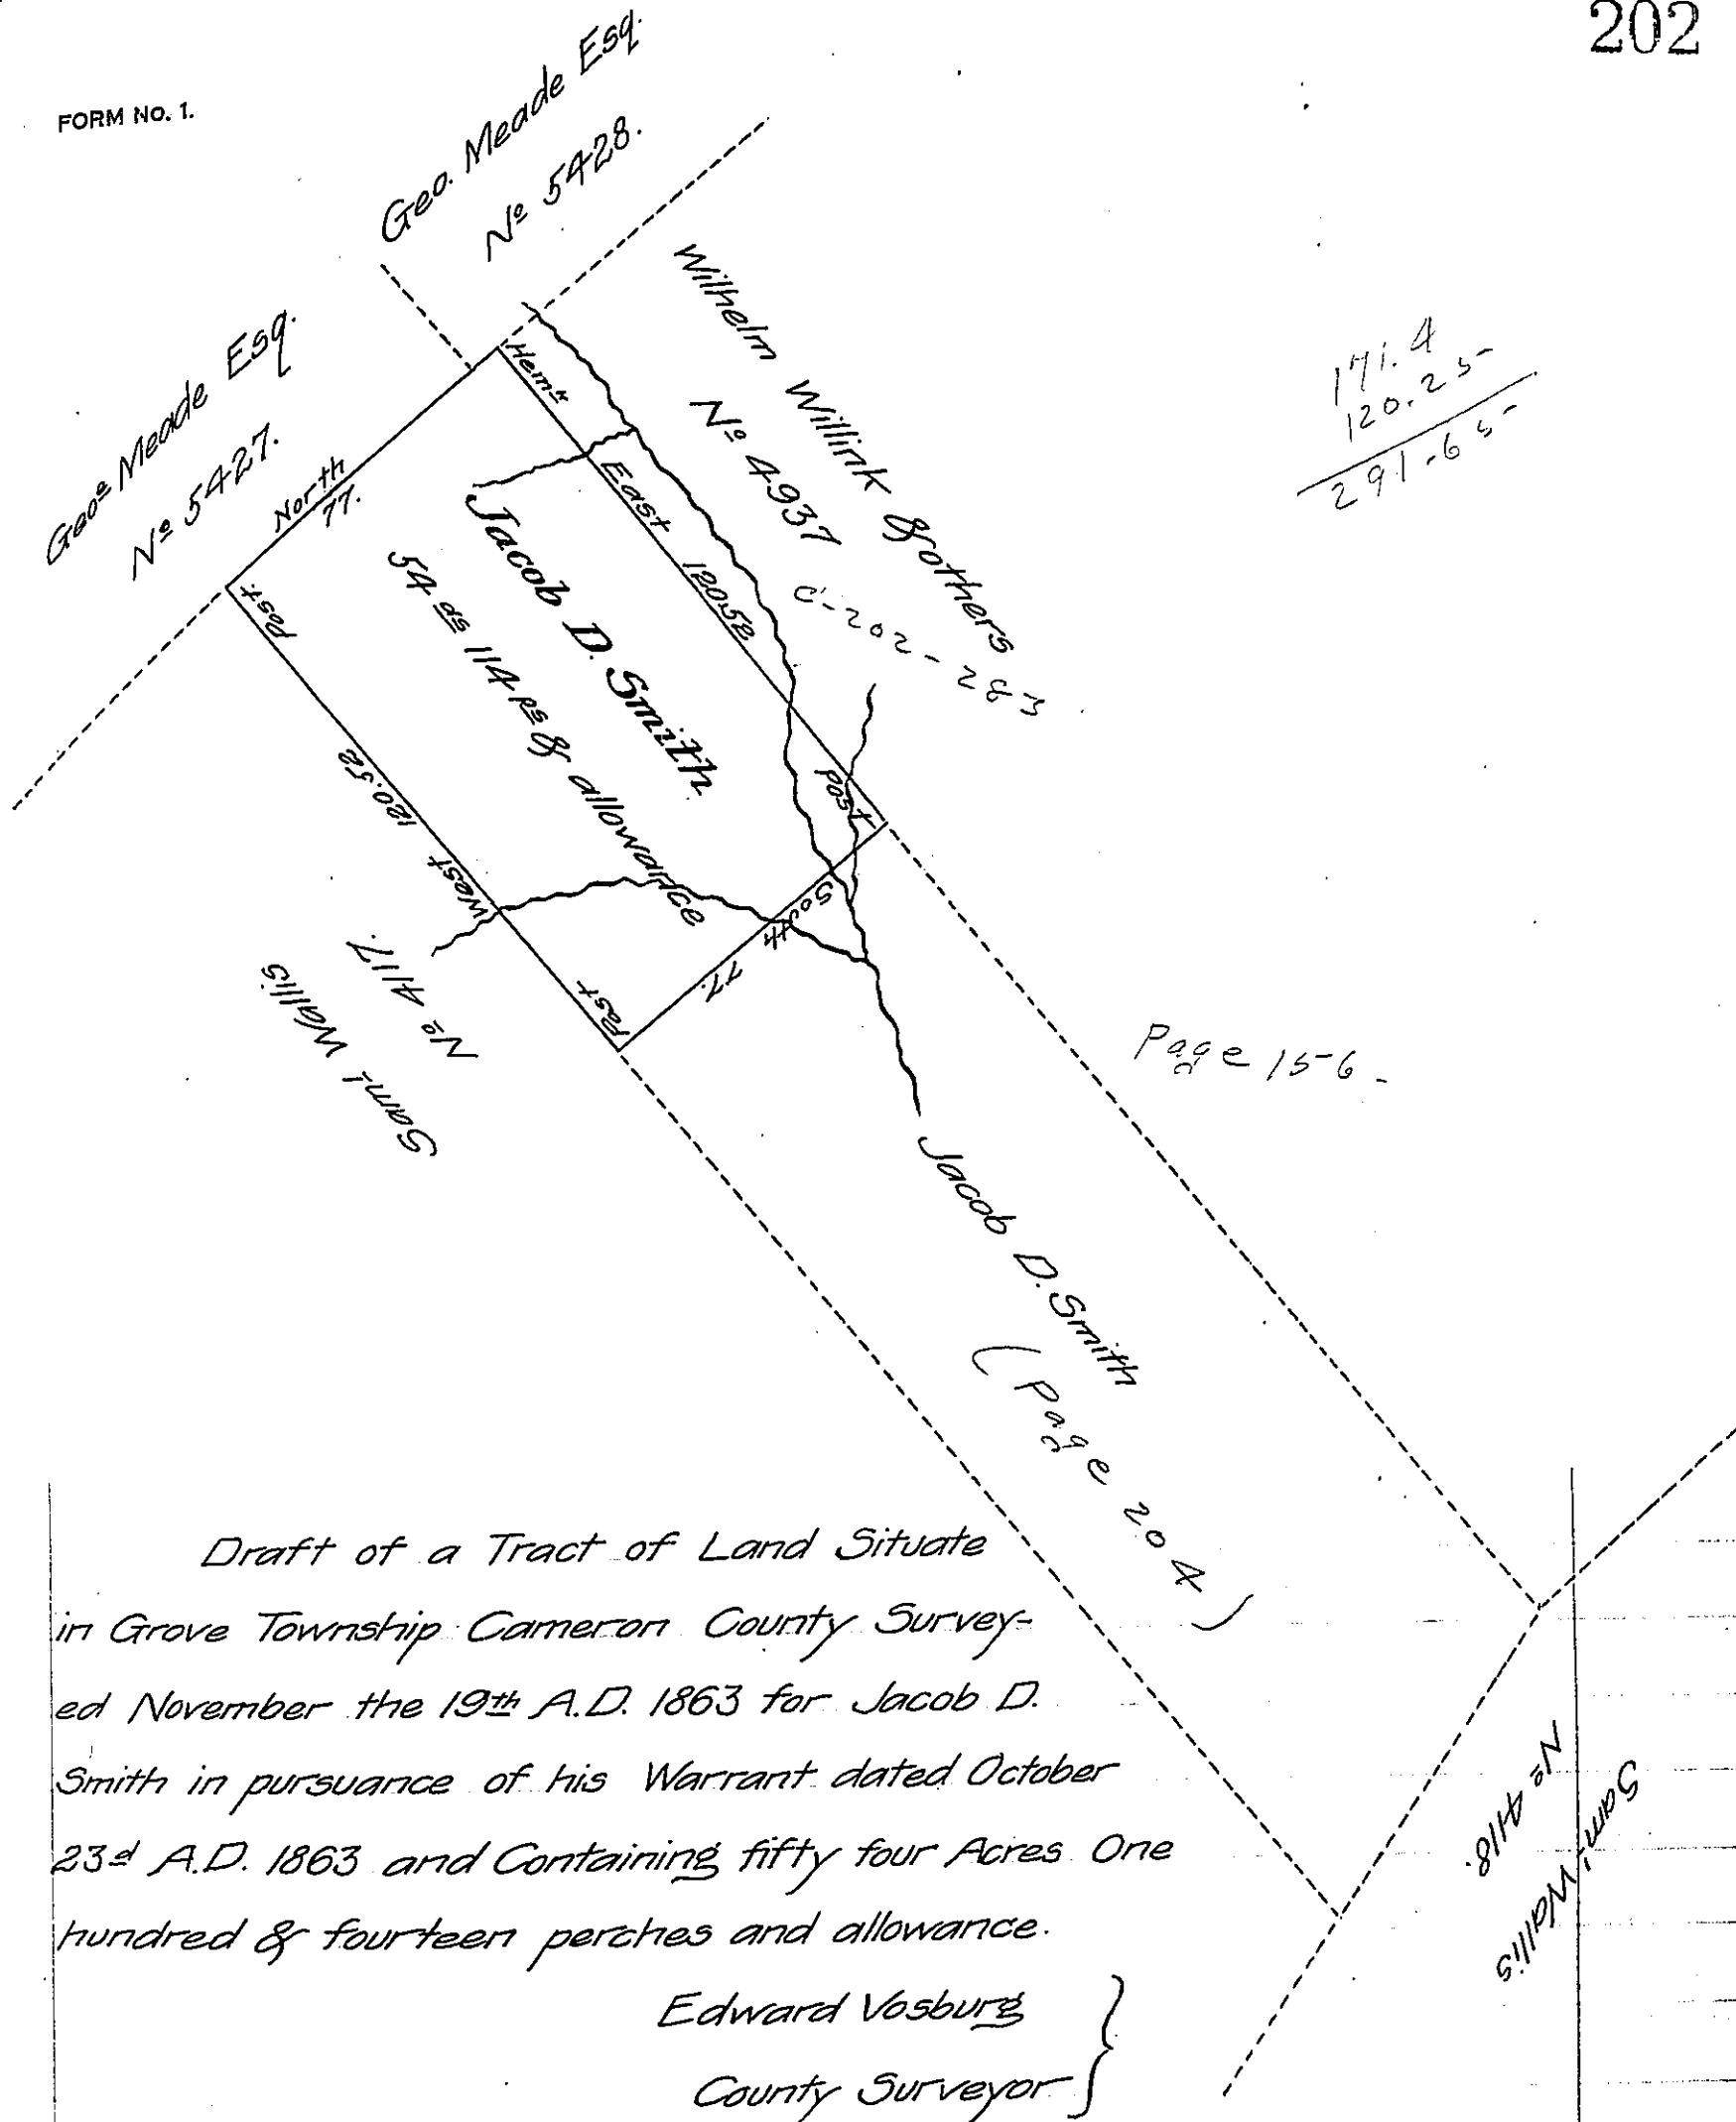 202
FORM No. 1.
Geo. Meade Esq.
Nº 5428.
Geoe Meade Esq.
Nº 5427.
Wilhelm Willink & others
Nº 4937
C-202-283
171.4
120.25
291.65
North
77.
Hemk
East 120.52
Post
Jacob D. Smith
54 as 114 ps & allowance
Post
South
77.
West 120.52
Post
Nº 4117.
Saml Wallis
Page 156-
Jacob D. Smith
(page 204)
Nº 4118.
Saml Wallis
Draft of a Tract of Land Situate
in Grove Township Cameron County Survey-
ed November the 19th A.D. 1863 for Jacob D.
Smith in pursuance of his Warrant dated October
23d A.D. 1863 and Containing fifty four Acres One
hundred & fourteen perches and allowance.
Edward Vosburg
County Surveyor